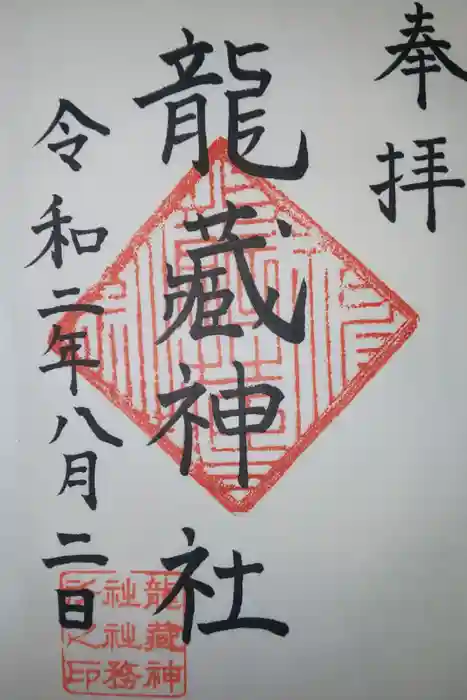 奉拝
龍藏神社
令和二年八月二日
龍藏神
社社務
所之印